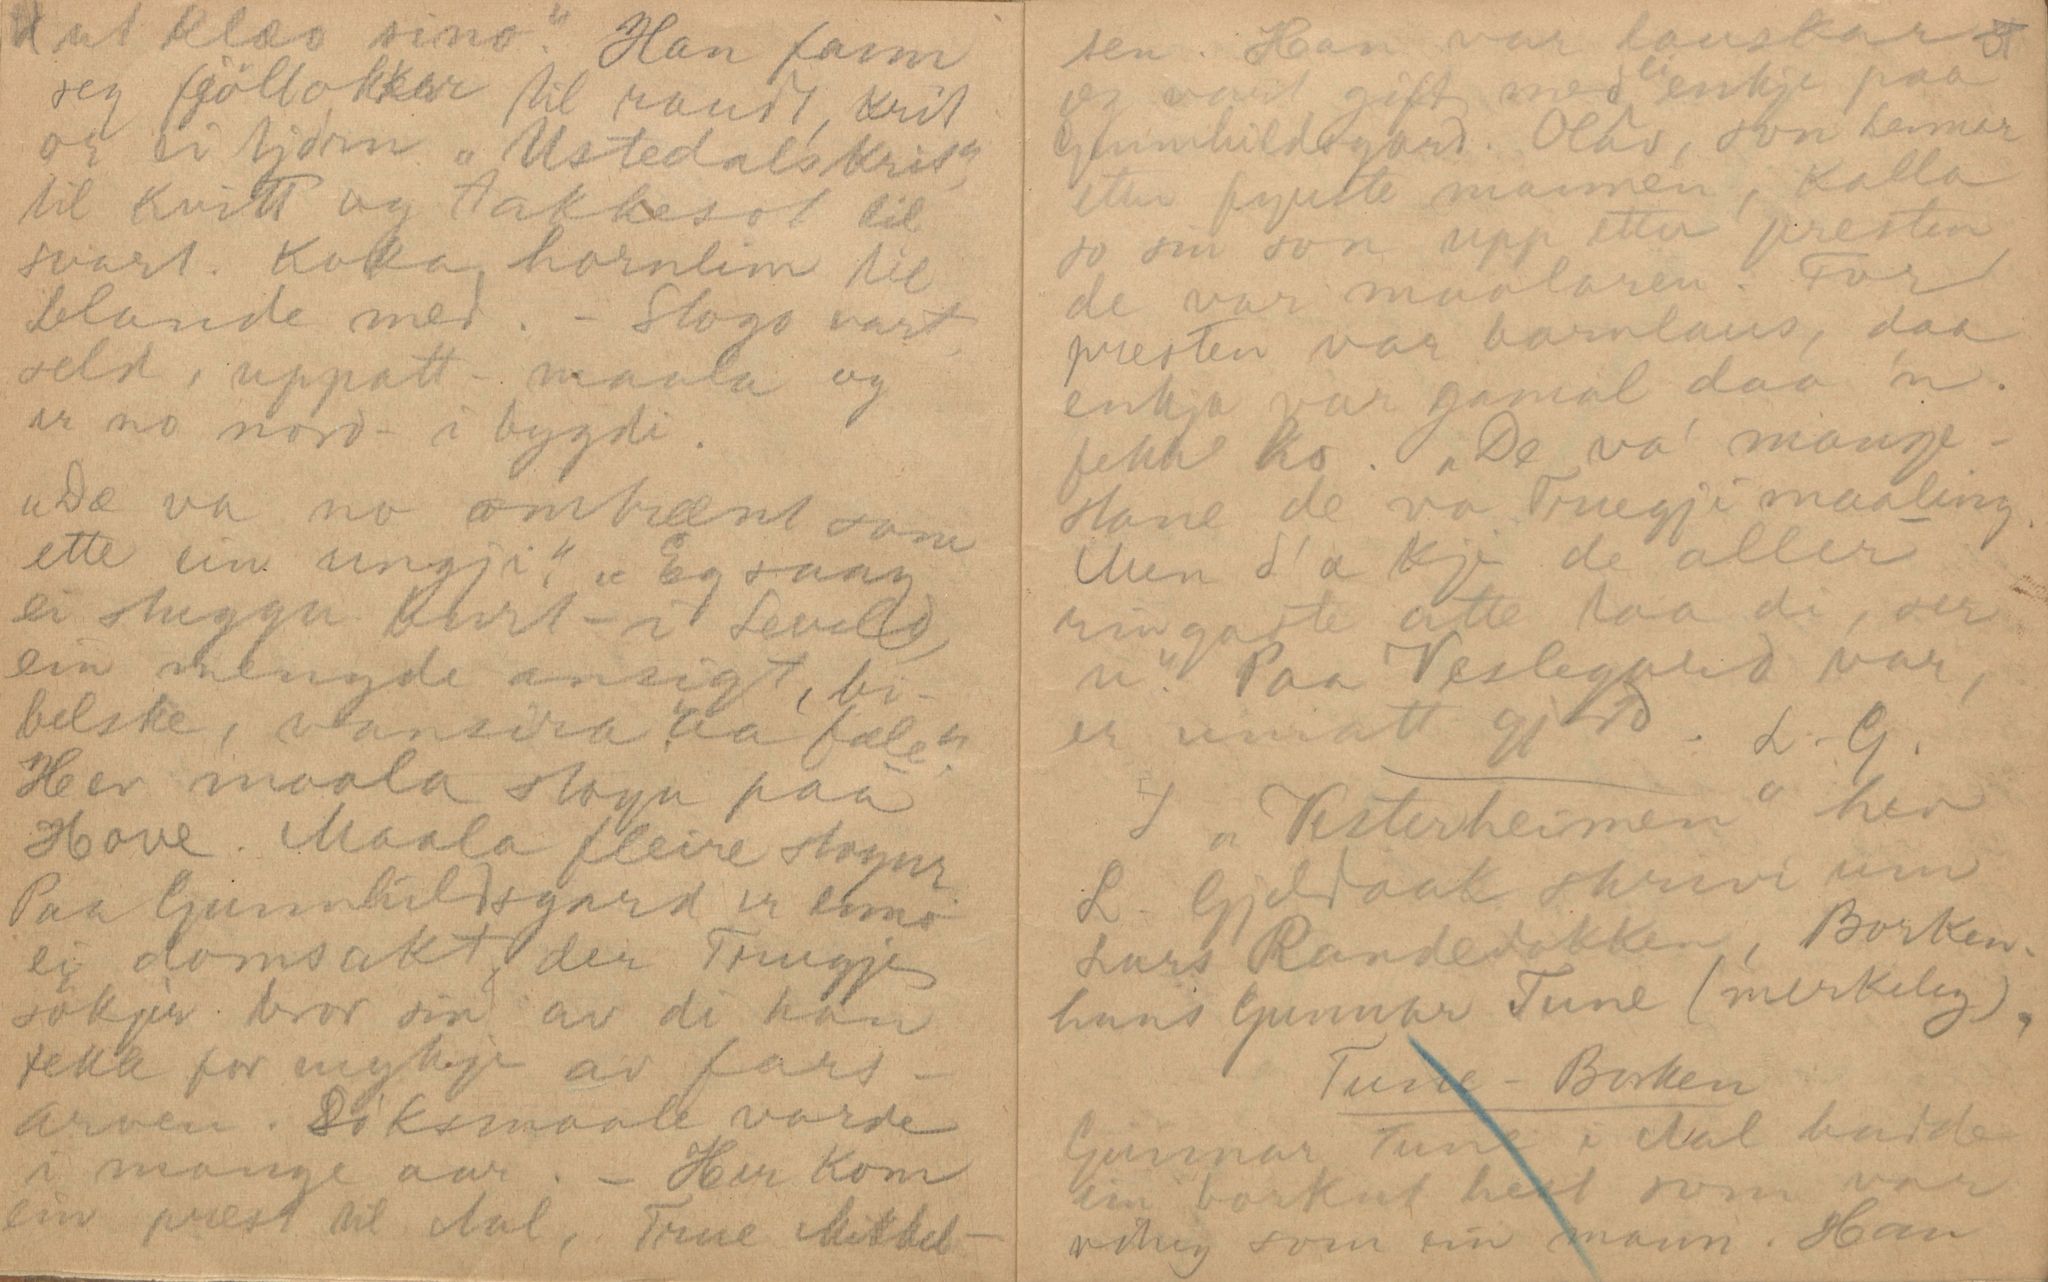 ut klæo sino". Han fann
seg fjöllokker til raudt, krit
or ei tjörn "Ustedalskrit"
til kvitt og takkesot til
svart. Koka hornlim til
blande med. - Stogo vart
seld, uppatt- maala og
er no nord- i bygdi.
"De va no ombrent som
ette ein ungji". "Eg saag
ei stuggu burt- i Leveld,
ein mengde ansigt, bi-
belske, vansira aa fæle".
Her maala stogu paa
Hove. Maala fleire stogur
Paa Gunnhildsgard er enno
ei domsakt, der Truegje
sökjer bror sin av di han
fekk for mykje av fars-
arven. Söksmaale varde
i mange aar. - Her kom
ein prest til Aal, True Mikkel-
sen. Han var lauskar
og vart gift med ei enkje paa
Gunnhildsgard. Olav, son hennar
etter fyrste mannen, kalla
so sin son upp etter presten
de var maalaren. For
presten var barnlaus, daa
enkja var gamal daa 'n
fekk ho. "De va' mange-
stane de va Truegji maaling.
Men d'a kje de aller
ringaste atte taa di, ser
u". Paa Veslegard var,
er umatt gjord. L. G.
I "Vesterheimen" hev
L. Gjeldaak skrivi um
Lars Randedokken, Borken-
huns Gunnar Tune (merkeleg),
Tune - Borken
Gunnar Tune i Aal hadde
ein borkut hest som var
viting som ein mann. Han